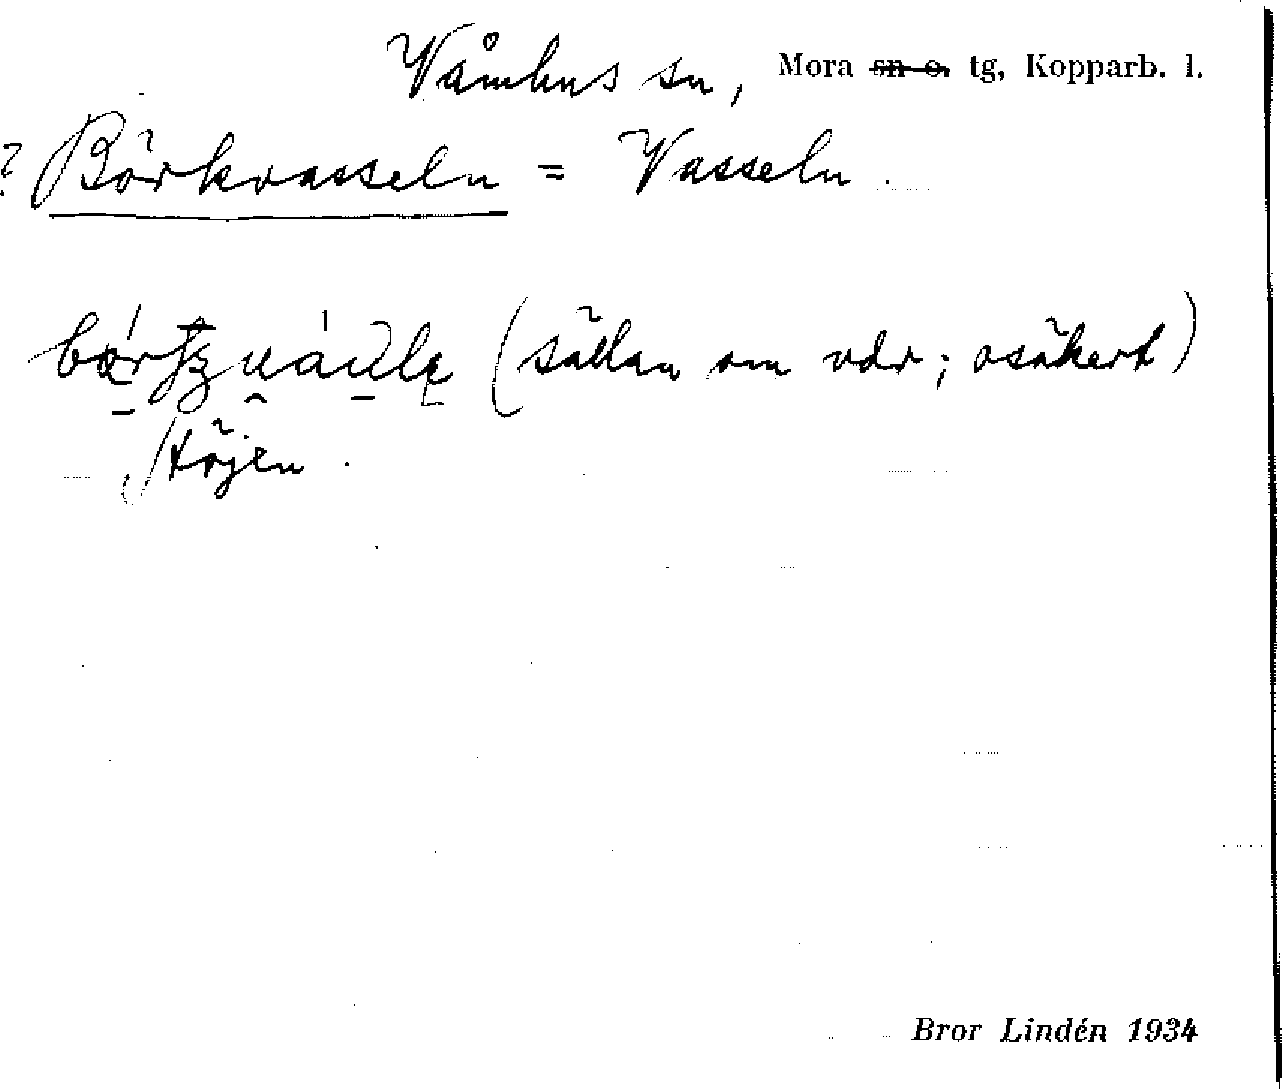 Våmhus sn, Mora sn o. tg, Kopparb. l.
? Börkvasseln = Vasseln.
(sällan om vdr; osäkert)
Höjen.
Bror Lindén 1934